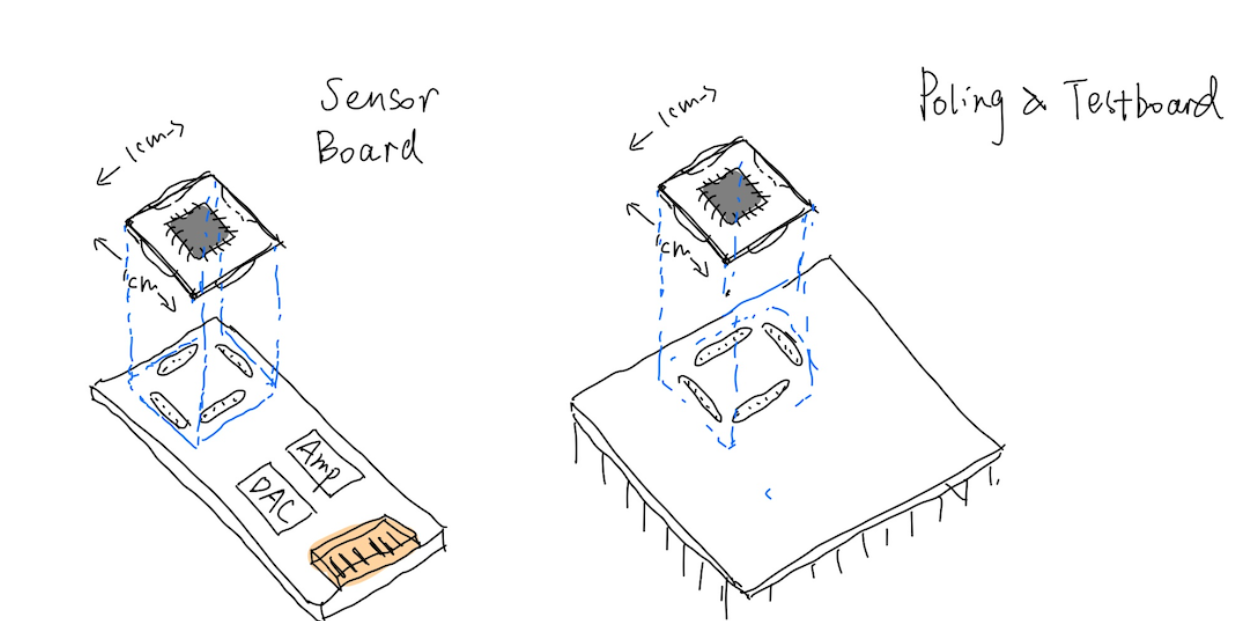 Sensor
Board
1cm
1cm
Amp
DAC
Poling & Testboard
1cm
1cm